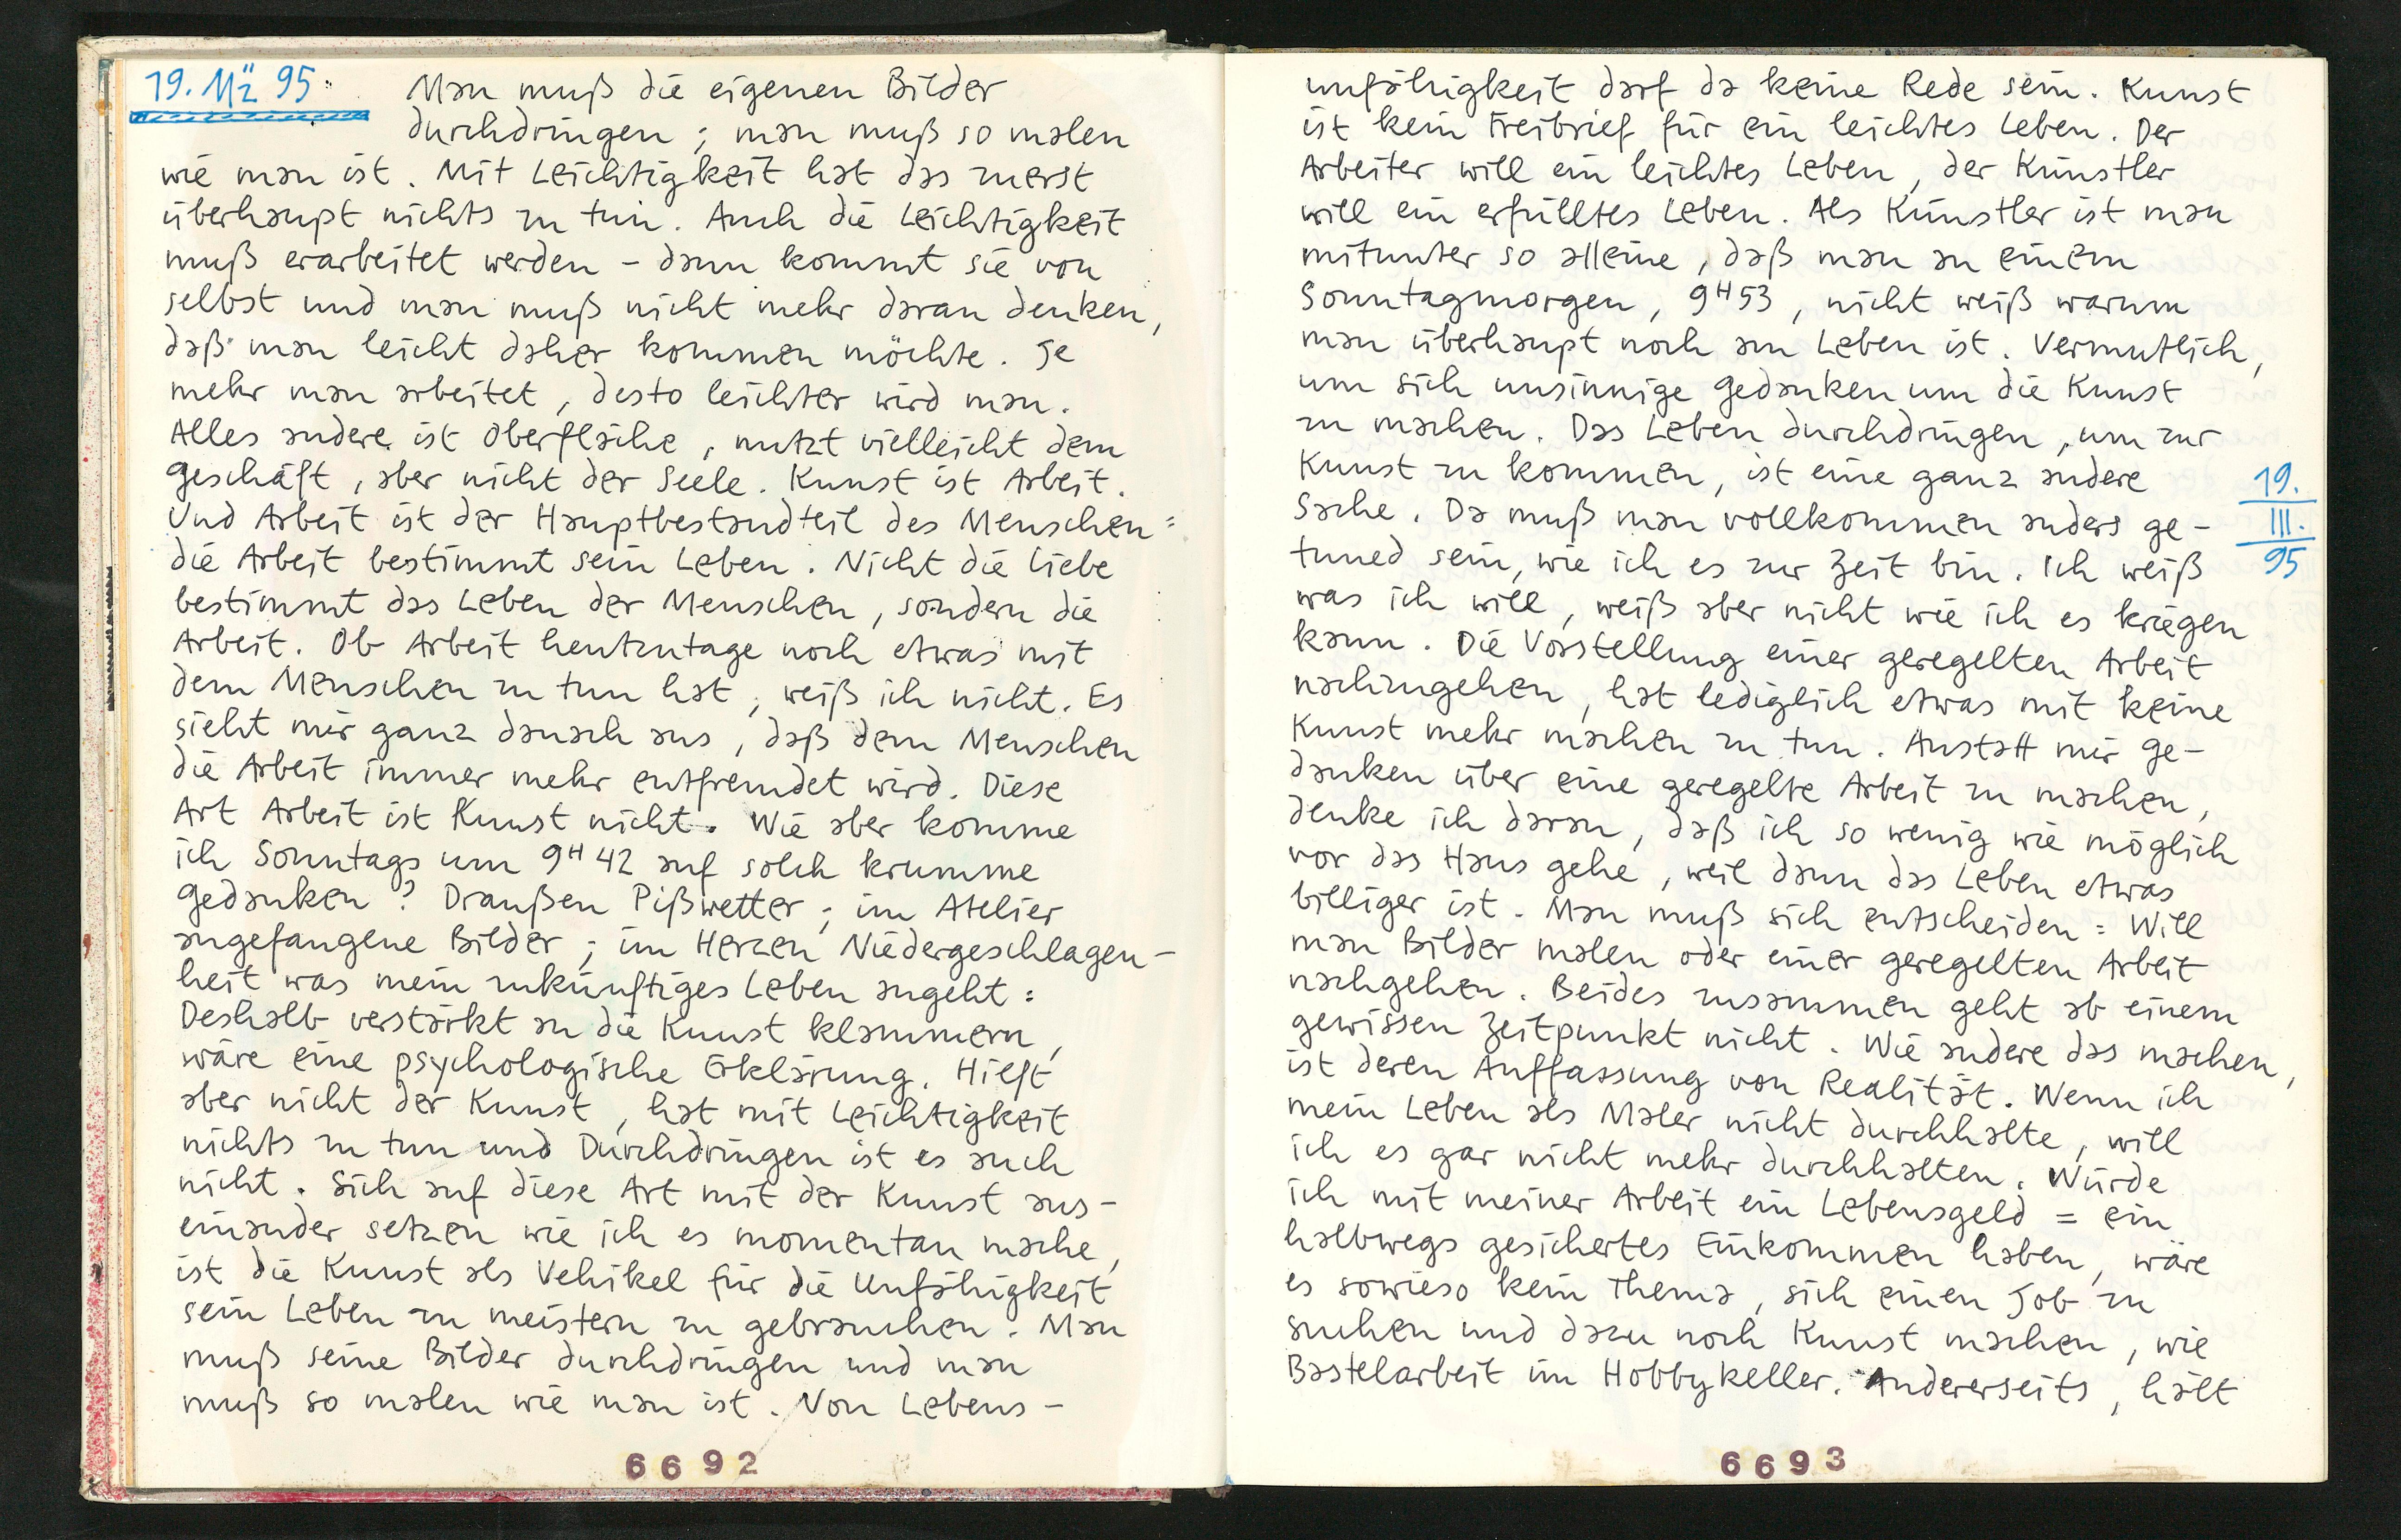 19. Mä 95: Man muß die eigenen Bilder
durchdringen; man muß so malen
wie man ist. Mit Leichtigkeit hat das zuerst
überhaupt nichts zu tun. Auch die Leichtigkeit
muß erarbeitet werden – dann kommt sie von
selbst und man muß nicht mehr daran denken,
daß man leicht daher kommen möchte. Je
mehr man arbeitet, desto leichter wird man.
Alles andere ist Oberfläche, nutzt vielleicht dem
Geschäft, aber nicht der Seele. Kunst ist Arbeit.
Und Arbeit ist der Hauptbestandteil des Menschen:
die Arbeit bestimmt sein Leben. Nicht die Liebe
bestimmt das Leben der Menschen, sondern die
Arbeit. Ob Arbeit heutzutage noch etwas mit
dem Menschen zu tun hat, weiß ich nicht. Es
sieht mir ganz danach aus, daß dem Menschen
die Arbeit immer mehr entfremdet wird. Diese
Art Arbeit ist Kunst nicht. Wie aber komme
ich Sonntags um 9H42 auf solch krumme
Gedanken? Draußen Pißwetter; im Atelier
angefangene Bilder; im Herzen Niedergeschlagen-
heit was mein zukünftiges Leben angeht:
Deshalb verstärkt an die Kunst klammern,
wäre eine psychologische Erklärung. Hilft
aber nicht der Kunst, hat mit Leichtigkeit
nichts zu tun und Durchdringen ist es auch
nicht. Sich auf diese Art mit der Kunst aus-
einander setzen wie ich es momentan mache,
ist die Kunst als Vehikel für die Unfähigkeit
sein Leben zu meistern zu gebrauchen. Man
muß seine Bilder durchdringen und man
muß so malen wie man ist. Von Lebens-
6692
unfähigkeit darf da keine Rede sein. Kunst
ist kein Freibrief für ein leichtes Leben. Der
Arbeiter will ein leichtes Leben, der Künstler
will ein erfülltes Leben. Als Künstler ist man
mitunter so alleine, daß man an einem
Sonntagmorgen, 9H53, nicht weiß warum
man überhaupt noch am Leben ist. Vermutlich,
um sich unsinnige Gedanken um die Kunst
zu machen. Das Leben durchdringen, um zur
Kunst zu kommen, ist eine ganz andere
Sache. Da muß man vollkommen anders ge-
tuned sein, wie ich es zur Zeit bin. Ich weiß
was ich will, weiß aber nicht wie ich es kriegen
kann. Die Vorstellung einer geregelten Arbeit
nachzugehen, hat lediglich etwas mit keine
Kunst mehr machen zu tun. Anstatt mir Ge-
danken über eine geregelte Arbeit zu machen,
denke ich daran, daß ich so wenig wie möglich
vor das Haus gehe, weil dann das Leben etwas
billiger ist. Man muß sich entscheiden: Will
man Bilder malen oder einer geregelten Arbeit
nachgehen. Beides zusammen geht ab einem
gewissen Zeitpunkt nicht. Wie andere das machen,
ist deren Auffassung von Realität. Wenn ich
mein Leben als Maler nicht durchhalte, will
ich es gar nicht mehr durchhalten. Würde
ich mit meiner Arbeit ein Lebensgeld = ein
halbwegs gesichertes Einkommen haben, wäre
es sowieso kein Thema, sich einen Job zu
suchen und dazu noch Kunst machen, wie
Bastelarbeit im Hobbykeller. Andererseits, hält
19.
III.
95
6693